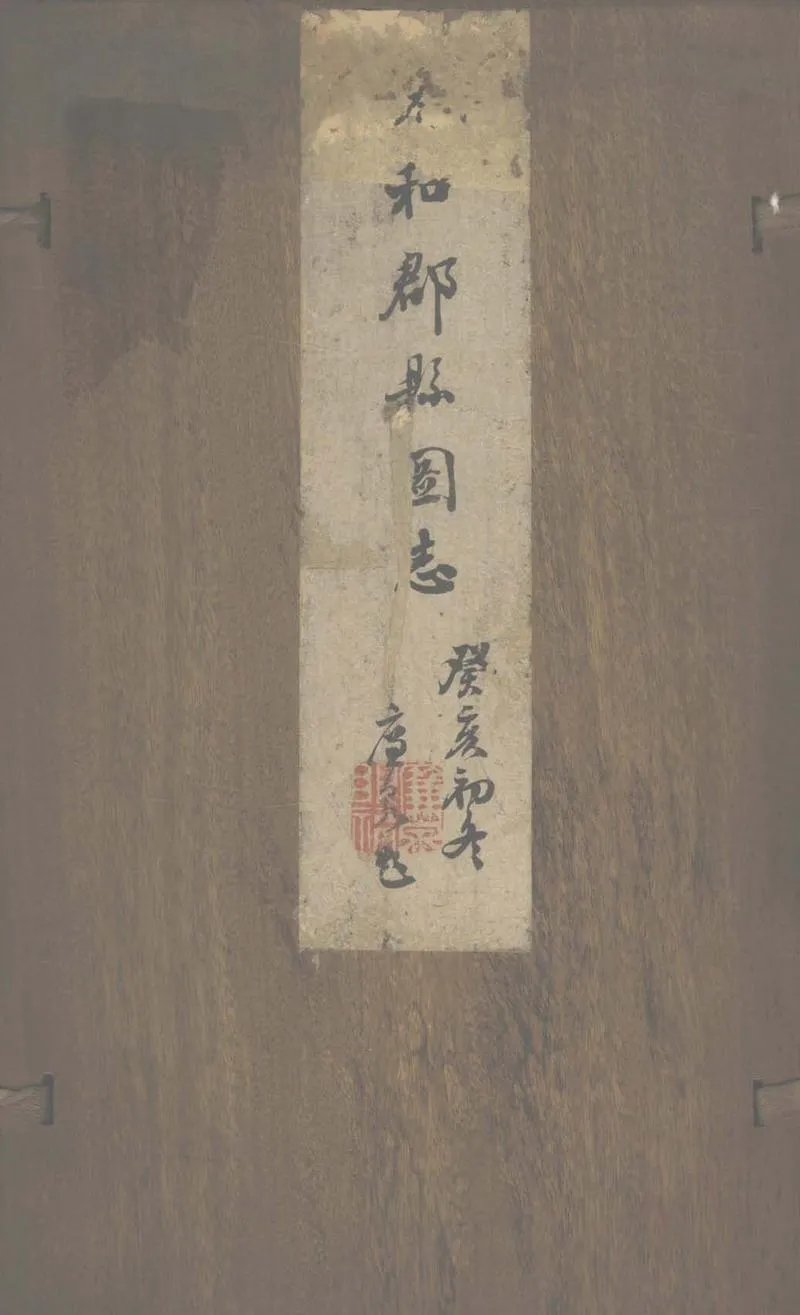 和郡縣圖志
癸亥初冬
題